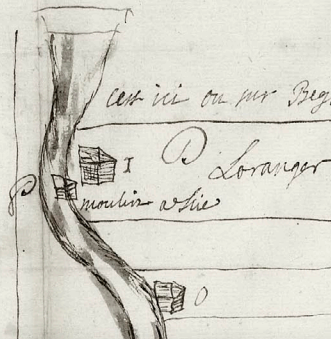 c'est ici ou mr Beg
D
Loranger
I
P
moulin a scie
O